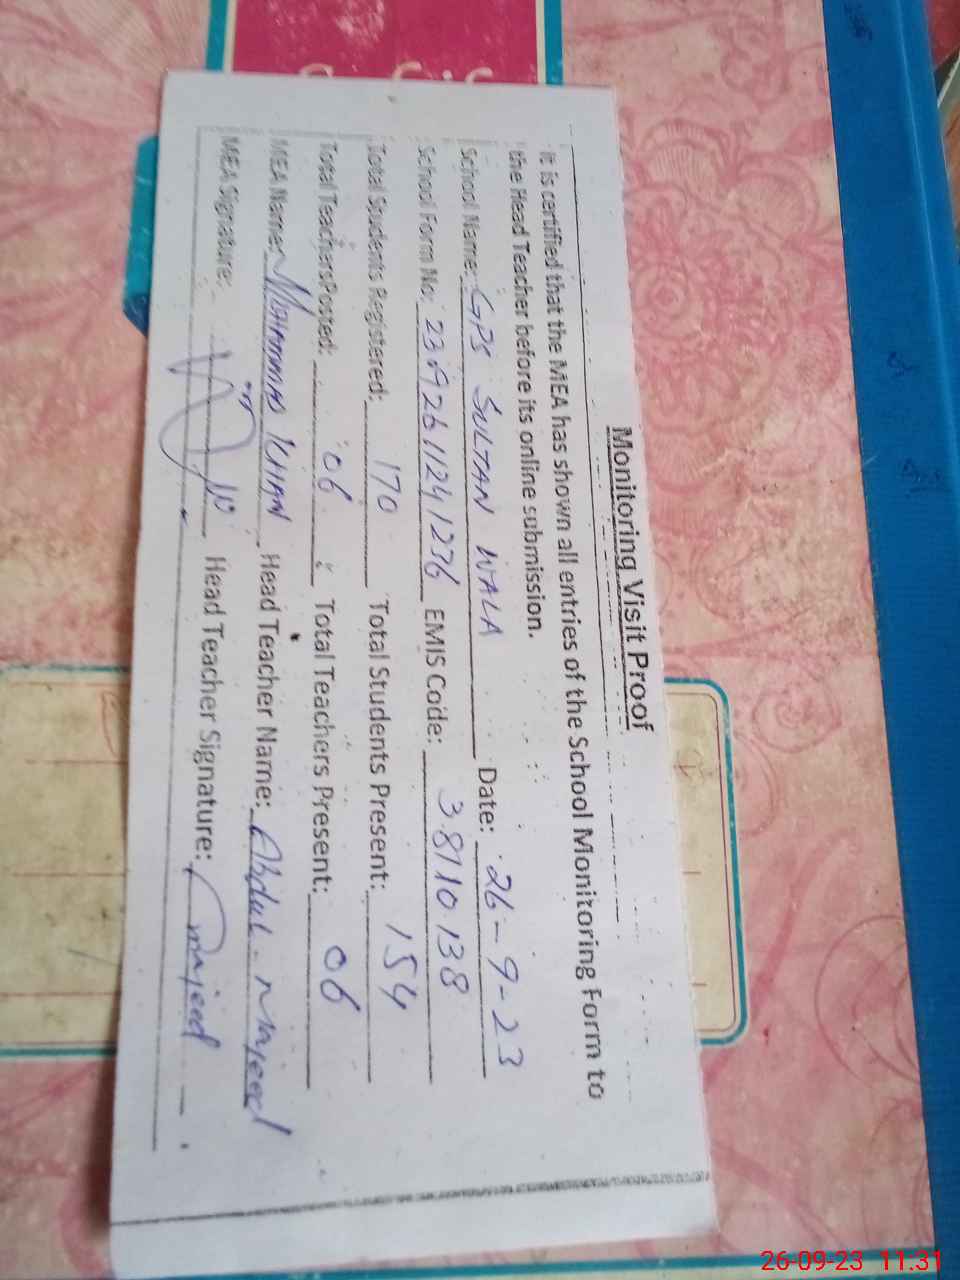 Monitoring Visit Proof
It is certified that the MEA has shown all entries of the School Monitoring Form to
the Head Teacher before its online submission.
School Name: GPS SULTAN WALA Date: 26-9-23
School Form No: 23092611241236 EMIS Code: 38110138
Total Students Registered: 170 Total Students Present: 154
Total TeachersPosted: 06 Total Teachers Present: 06
MEA Name: MOHAMMAD KHAN Head Teacher Name: Abdul-Majeed
MEA Signature: Head Teacher Signature: Majeed
26-09-23 11.31